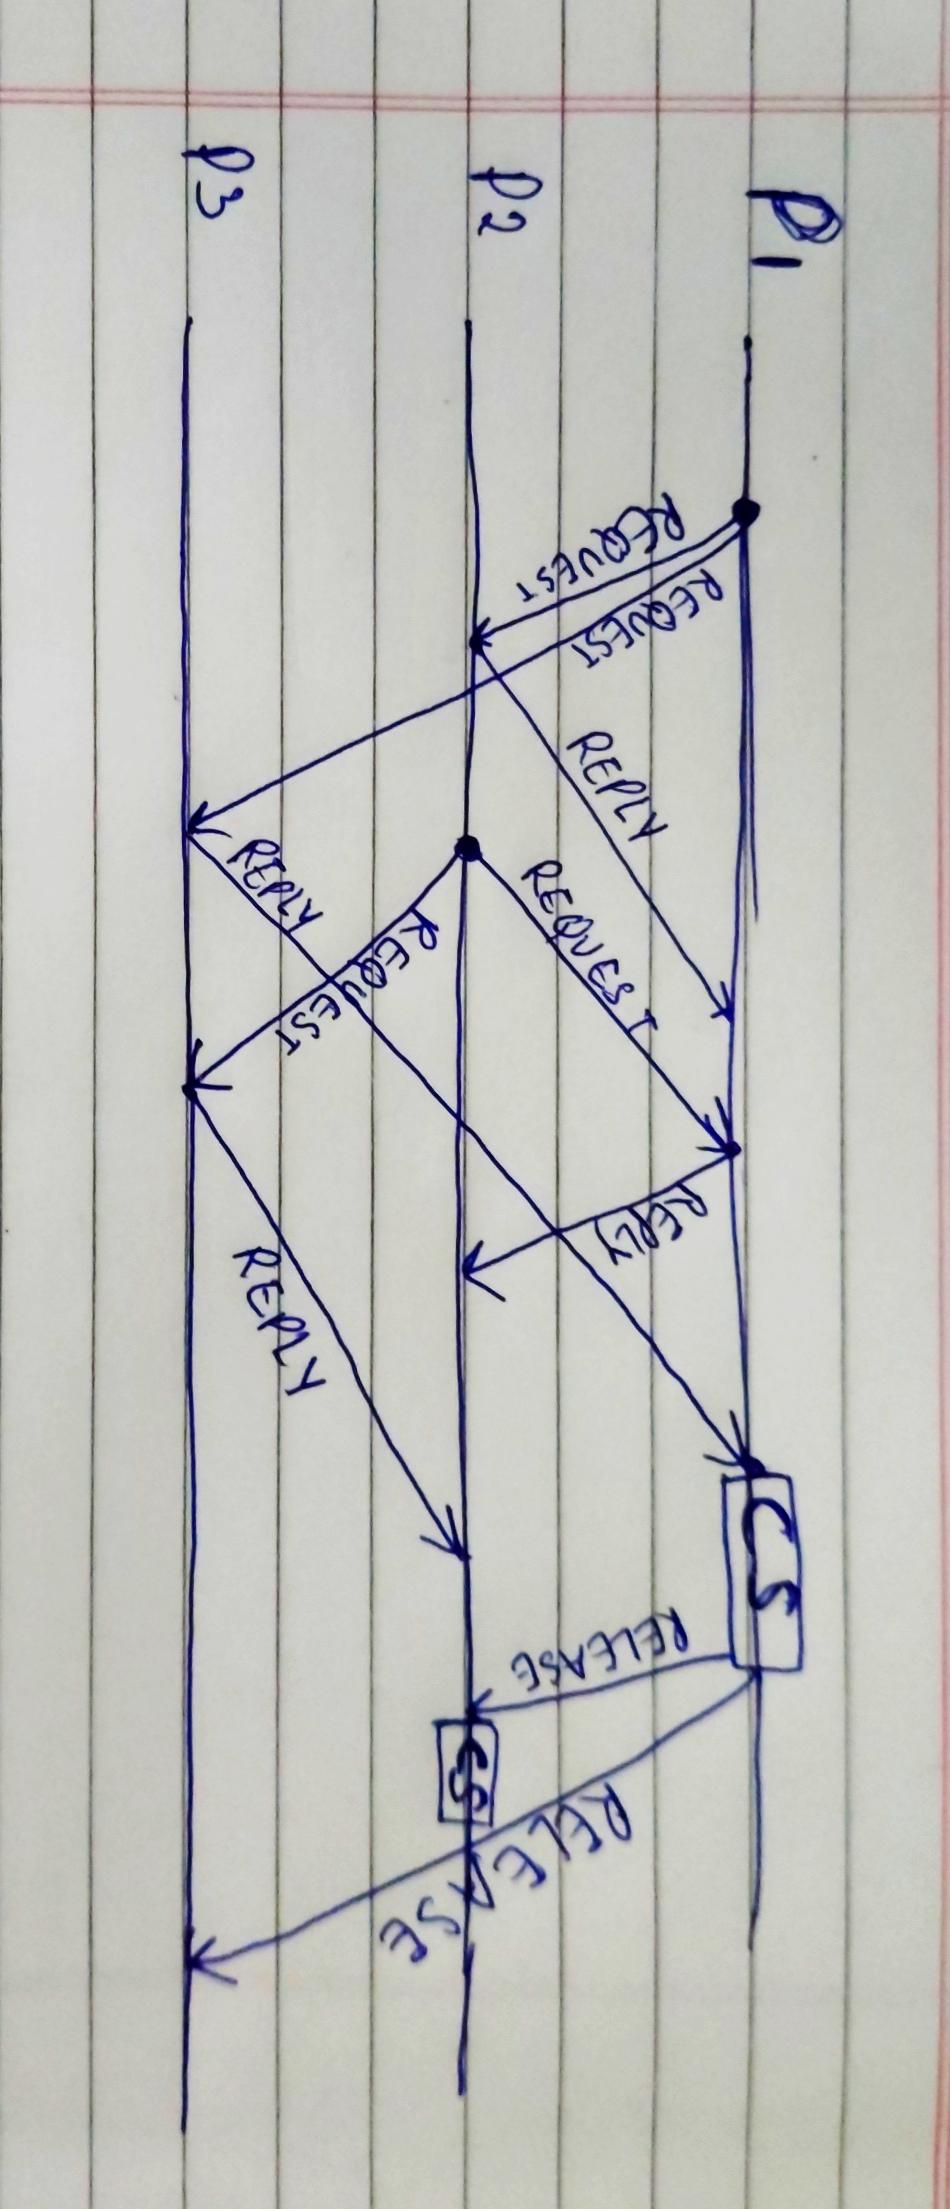 P1
CS
REQUEST
REQUEST
REPLY
REQUEST
REPLY
RELEASE
RELEASE
P2
CS
REQUEST
REPLY
REPLY
P3